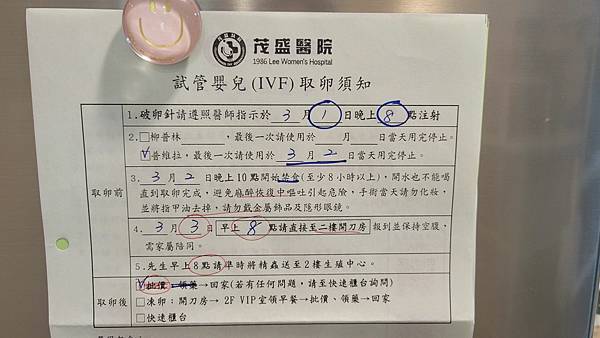 茂盛醫院
1986 Lee Women's Hospital
試管嬰兒(IVF)取卵須知
取卵前
1.破卵針請遵照醫師指示於 3 月 1 日晚上 8 點注射
2.□柳普林______,最後一次請使用於____月____日當天用完停止。
☑普維拉,最後一次請使用於 3 月 2 日當天用完停止。
3. 3 月 2 日晚上10點開始禁食(至少8小時以上),開水也不能喝
直到取卵完成,避免麻醉恢復中嘔吐引起危險,手術當天請勿化妝,
並將指甲油去掉,請勿戴金屬飾品及隱形眼鏡。
4. 3 月 3 日 早上 8 點請直接至二樓開刀房 報到並保持空腹,
需家屬陪同。
5.先生早上8點請準時將精蟲送至2樓生殖中心。
取卵後
☑批價、領藥→回家(若有任何問題,請至快速櫃台詢問)
□凍卵:開刀房→ 2F VIP室領早餐→批價、領藥→回家
□快速櫃台